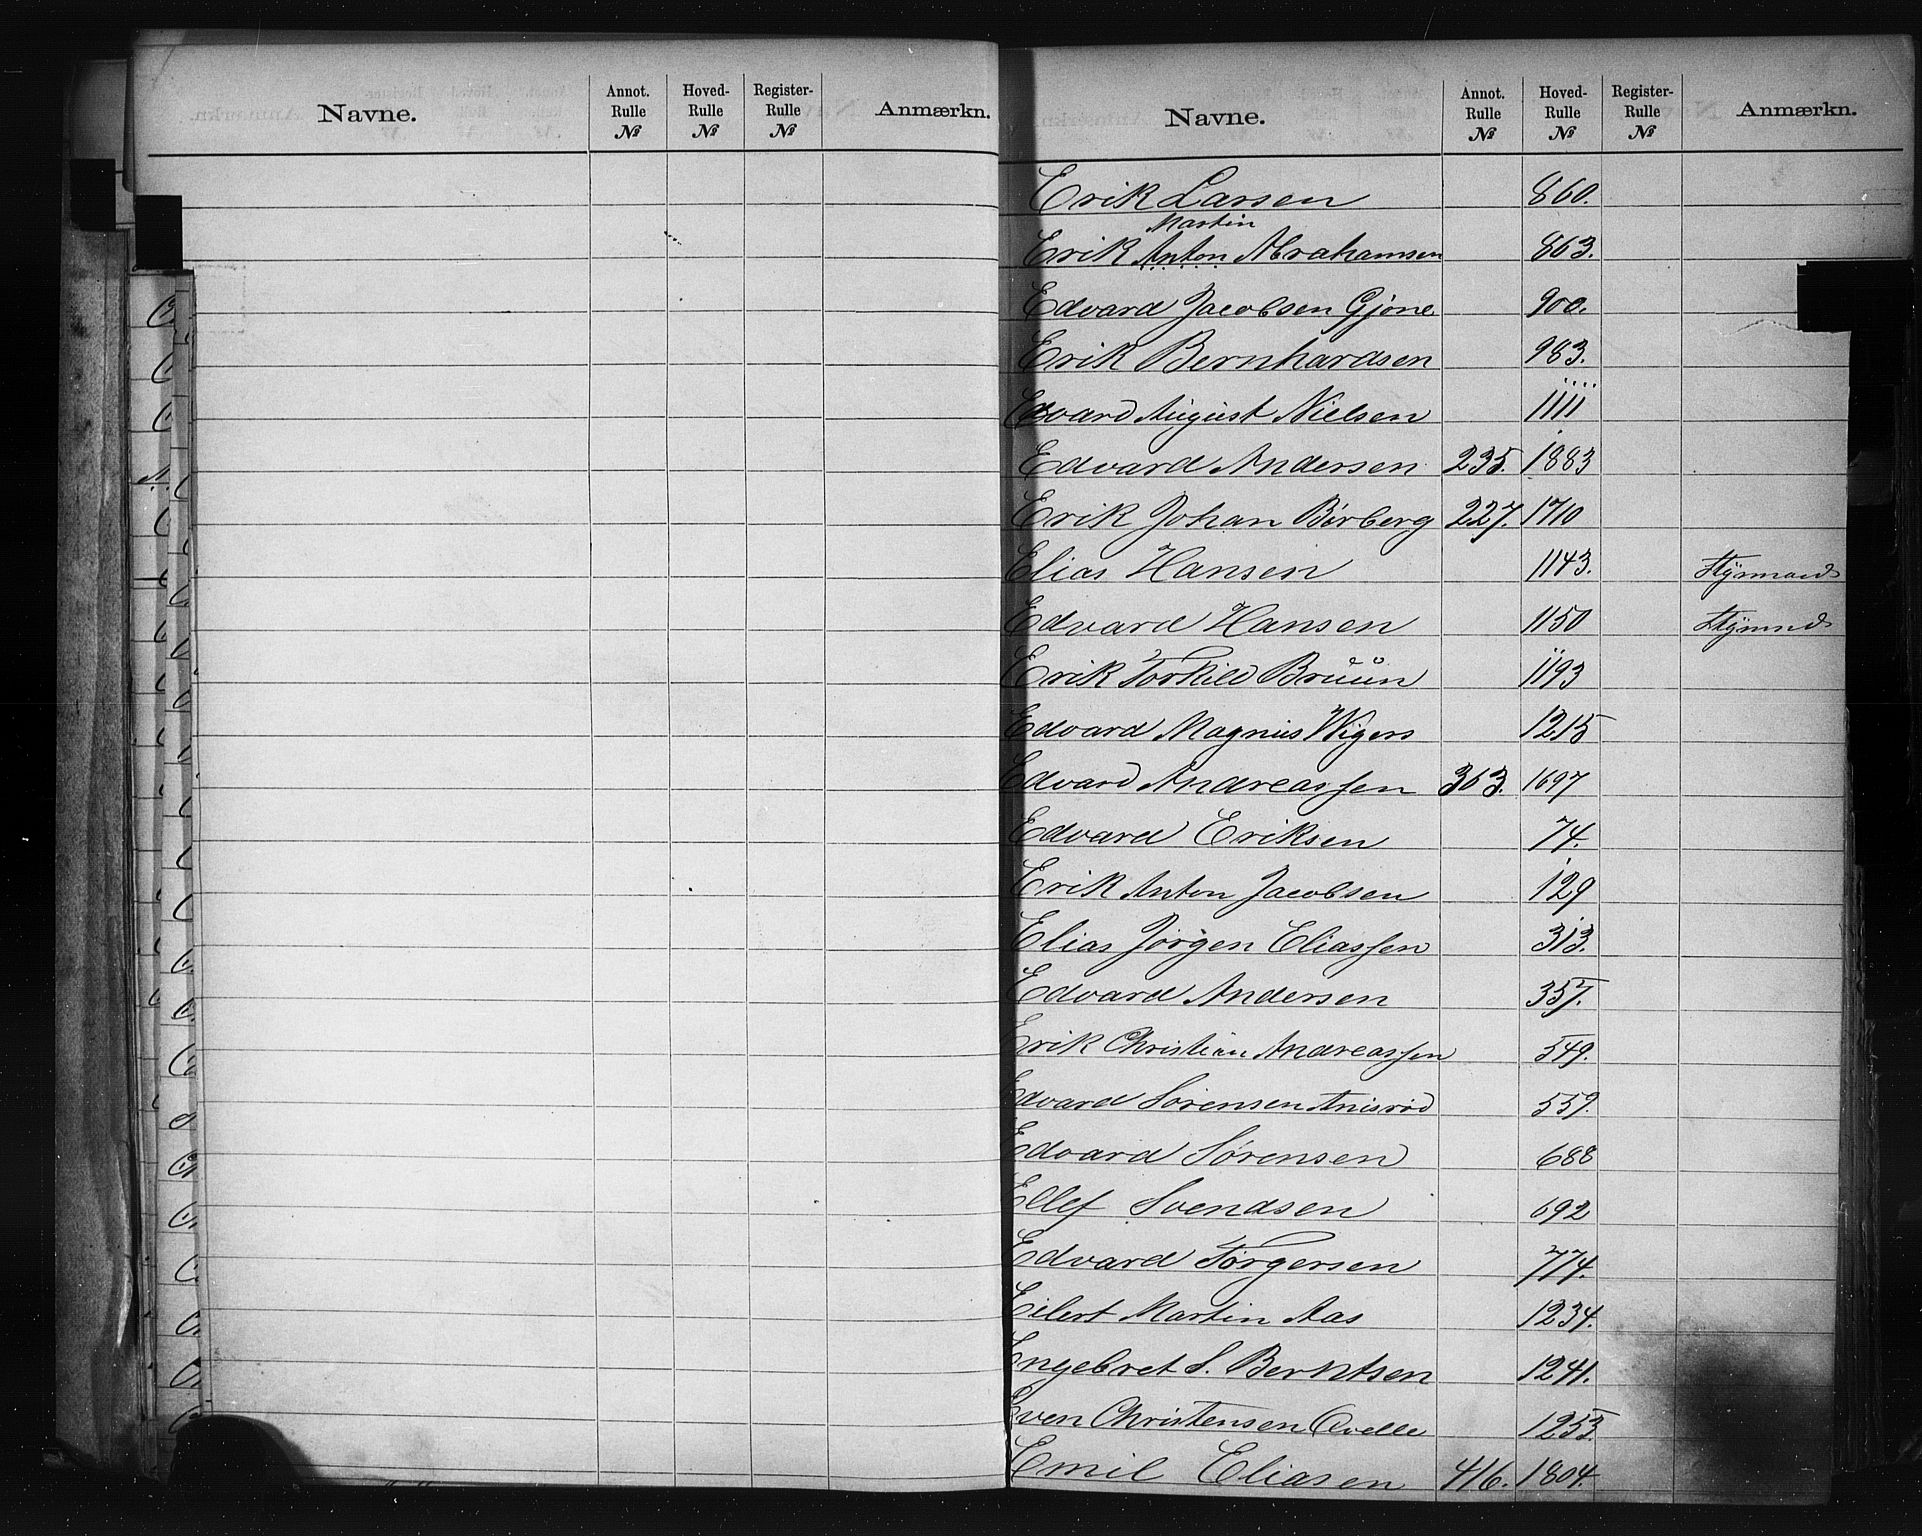 Navne. Annot. Rulle № Hoved-Rulle № Register-Rulle № Anmærkn.
Navne. Annot. Rulle № Hoved-Rulle № Register-Rulle № Anmærkn.
Erik Larsen 860.
Martin
Erik Anton Abrahamsen 863.
Edvard Jacobsen Gjone 900.
Erik Bernhardsen 983.
Edvard August Nielsen 1111
Edvard Andersen 235. 1883
Erik Johan Børberg 227. 1710
Elias Hansen 1143. Styrmand
Edvard Hansen 1150 Styrmd
Erik Torkild Bruun 1193
Edvard Magnus Wigers 1215
Edvard Andreassen 363. 1697
Edvard Eriksen 74.
Erik Anton Jacobsen 129
Elias Jørgen Eliassen 313.
Edvard Andersen 357.
Erik Christian Andreassen 549.
Edvard Sørensen Anisrød 559.
Edvard Sørensen 688
Ellef Svendsen 692
Edvard Torgersen 774.
Eilert Martin Aas 1234.
Engebret S. Berntsen 1241.
Even Christensen Qvelle 1253.
Emil Eliasen 416. 1804.